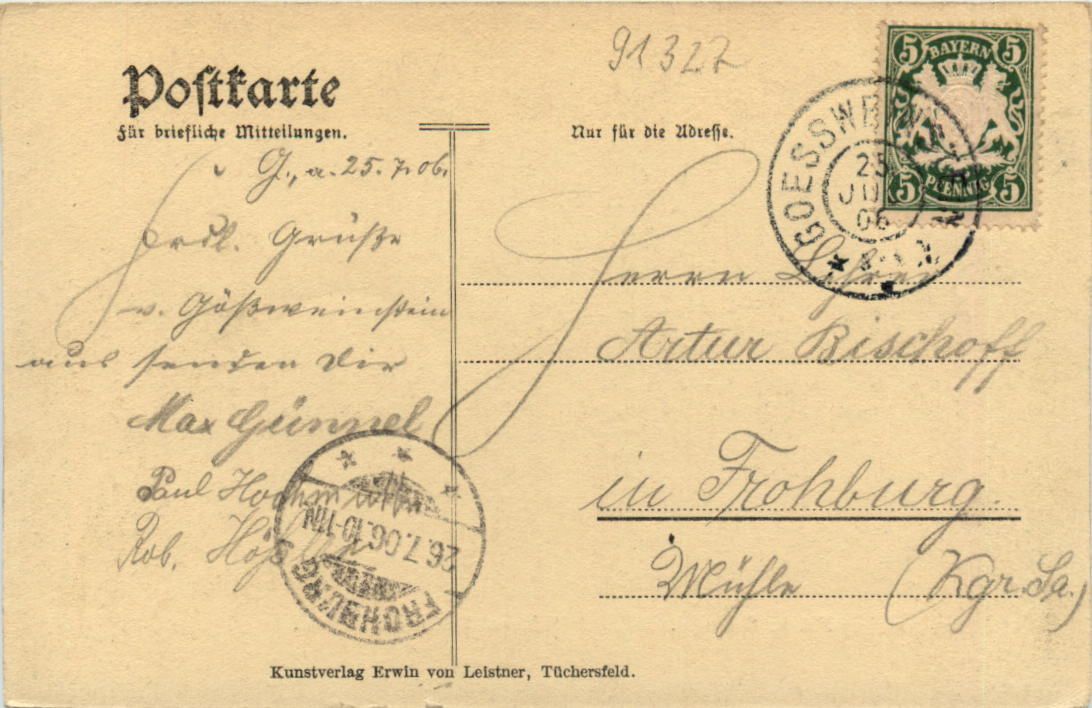 91322
Postkarte
Für briefliche Mitteilungen.
Nur für die Adresse.
5 BAYERN 5
5 PFENNIG 5
GOESSWEINSTEIN
25
JUL
06
G., a. 25.7.06.
Frdl. Grüße
v. Gößweinstein
aus senden Dir
Max Günnel
Paul
Rob.
Herrn Lehrer
Artur Bischoff
in Frohburg.
Mühle (Kgr. Sa.)
FROHBURG
26.7.06.10-11N
Kunstverlag Erwin von Leistner, Tüchersfeld.